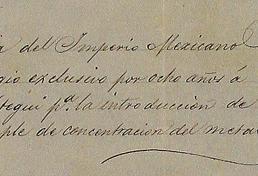 del Imperio Mexicano
gio exclusivo por ocho años á
tegui pª. la introduccion de
ple de concentracion del meta